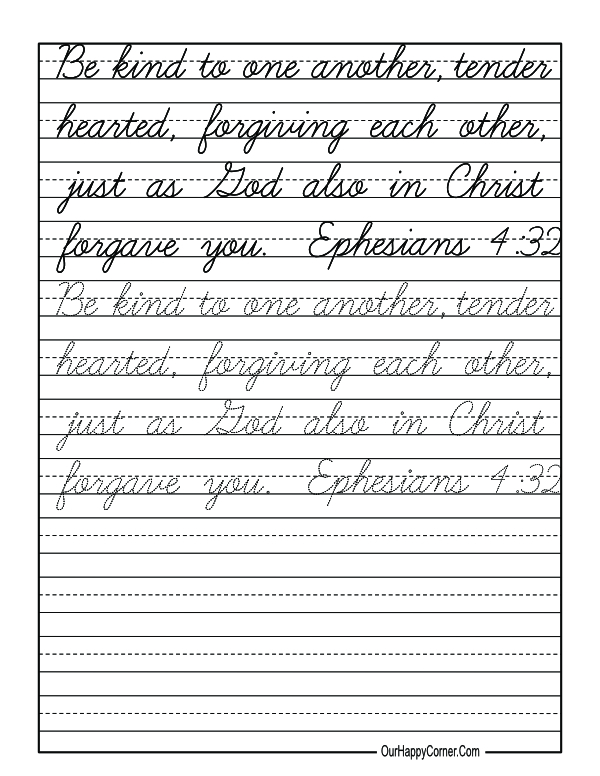 Be kind to one another, tender
hearted, forgiving each other,
just as God also in Christ
forgave you. Ephesians 4:32
Be kind to one another, tender
hearted, forgiving each other,
just as God also in Christ
forgave you. Ephesians 4:32
OurHappyCorner.Com